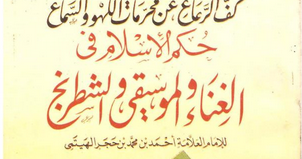 كف الرعاع عن محرمات اللهو والسماع
حُكم الإسلام في
الغناء والموسيقى والشطرنج
للإمام العلامة أحمد بن محمد بن حجر الهيتمي